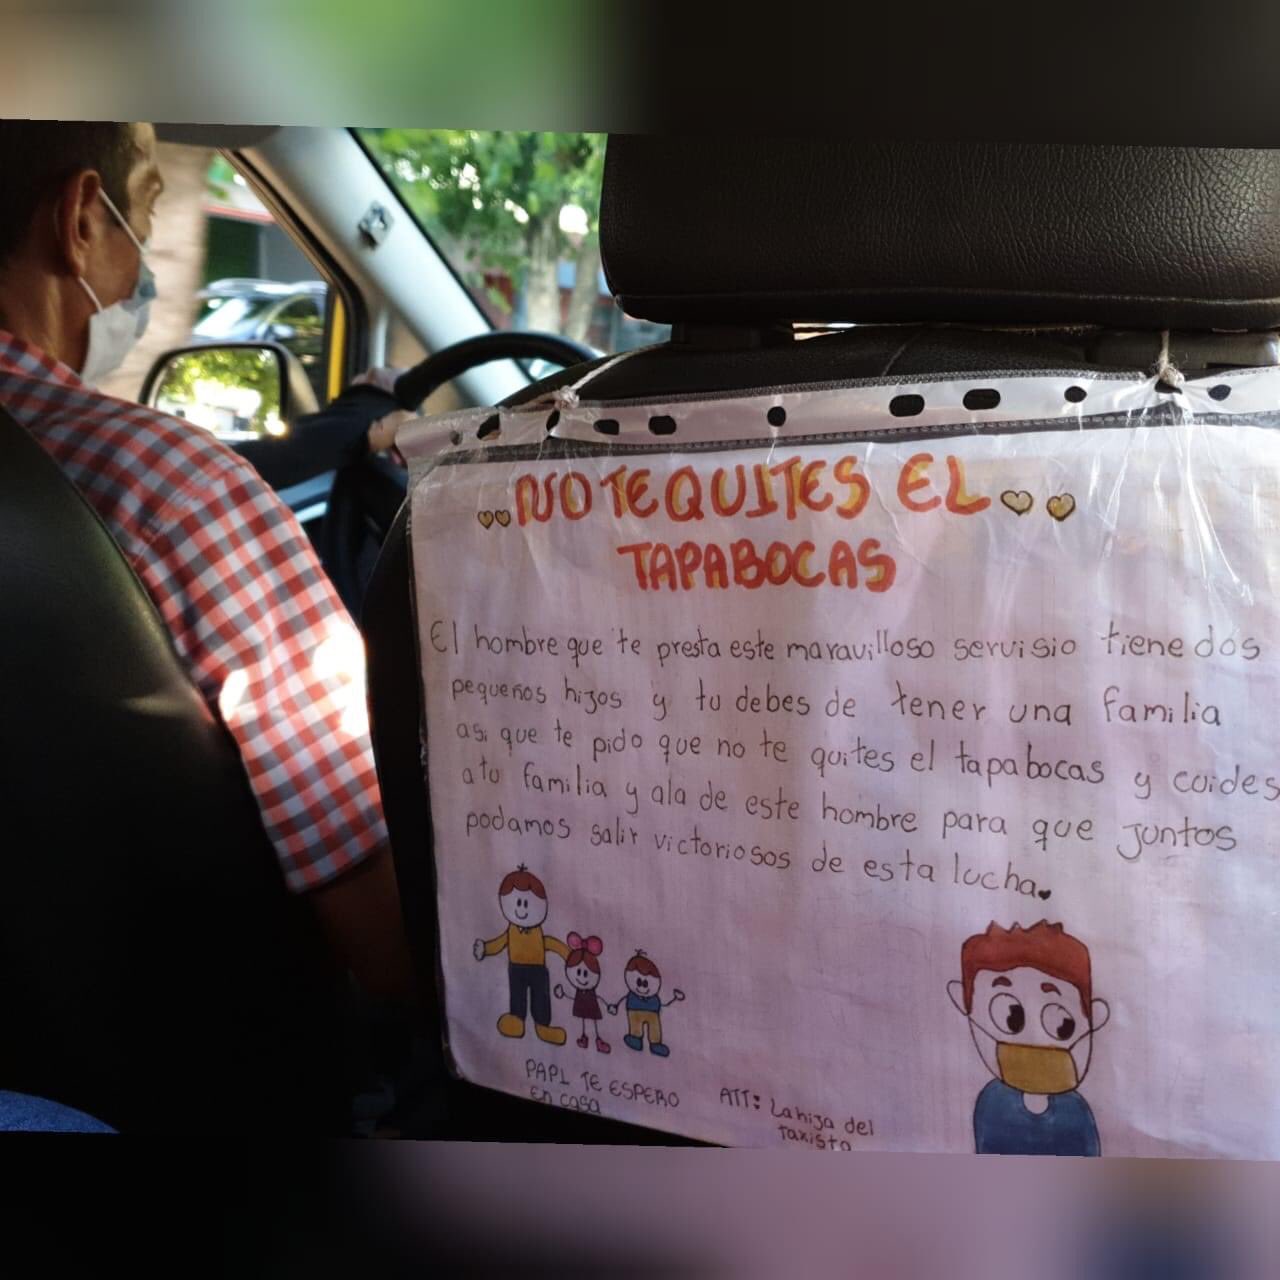 NO TE QUITES EL
TAPABOCAS
El hombre que te presta este maravilloso servisio tiene dos
pequeños hijos y tu debes de tener una familia
asi que te pido que no te quites el tapabocas y cuides
a tu familia y ala de este hombre para que juntos
podamos salir victoriosos de esta lucha
PAPI TE ESPERO
En casa
ATT: La hija del
taxista